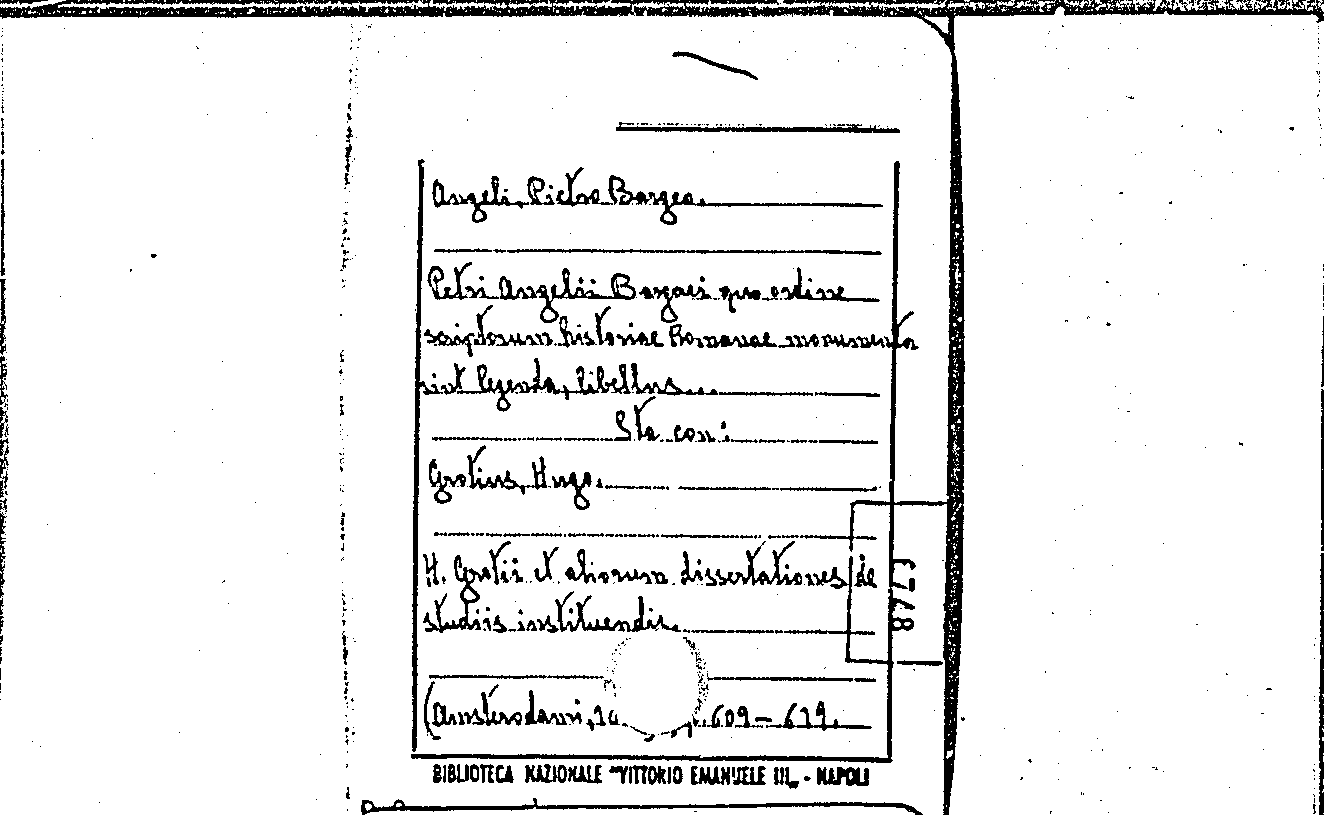 Angeli, Pietro Bargeo.
Petri Angelii Bargaei quo ordine
scriptorum historiae Romanae monumenta
sint legenda, libellus...
Sta con:
Grotius, Hugo.
H. Grotii et aliorum dissertationes de
studiis instituendis.
(Amsterodami, 609-
BIBLIOTECA NAZIONALE "VITTORIO EMANUELE III„ - NAPOLI
6748